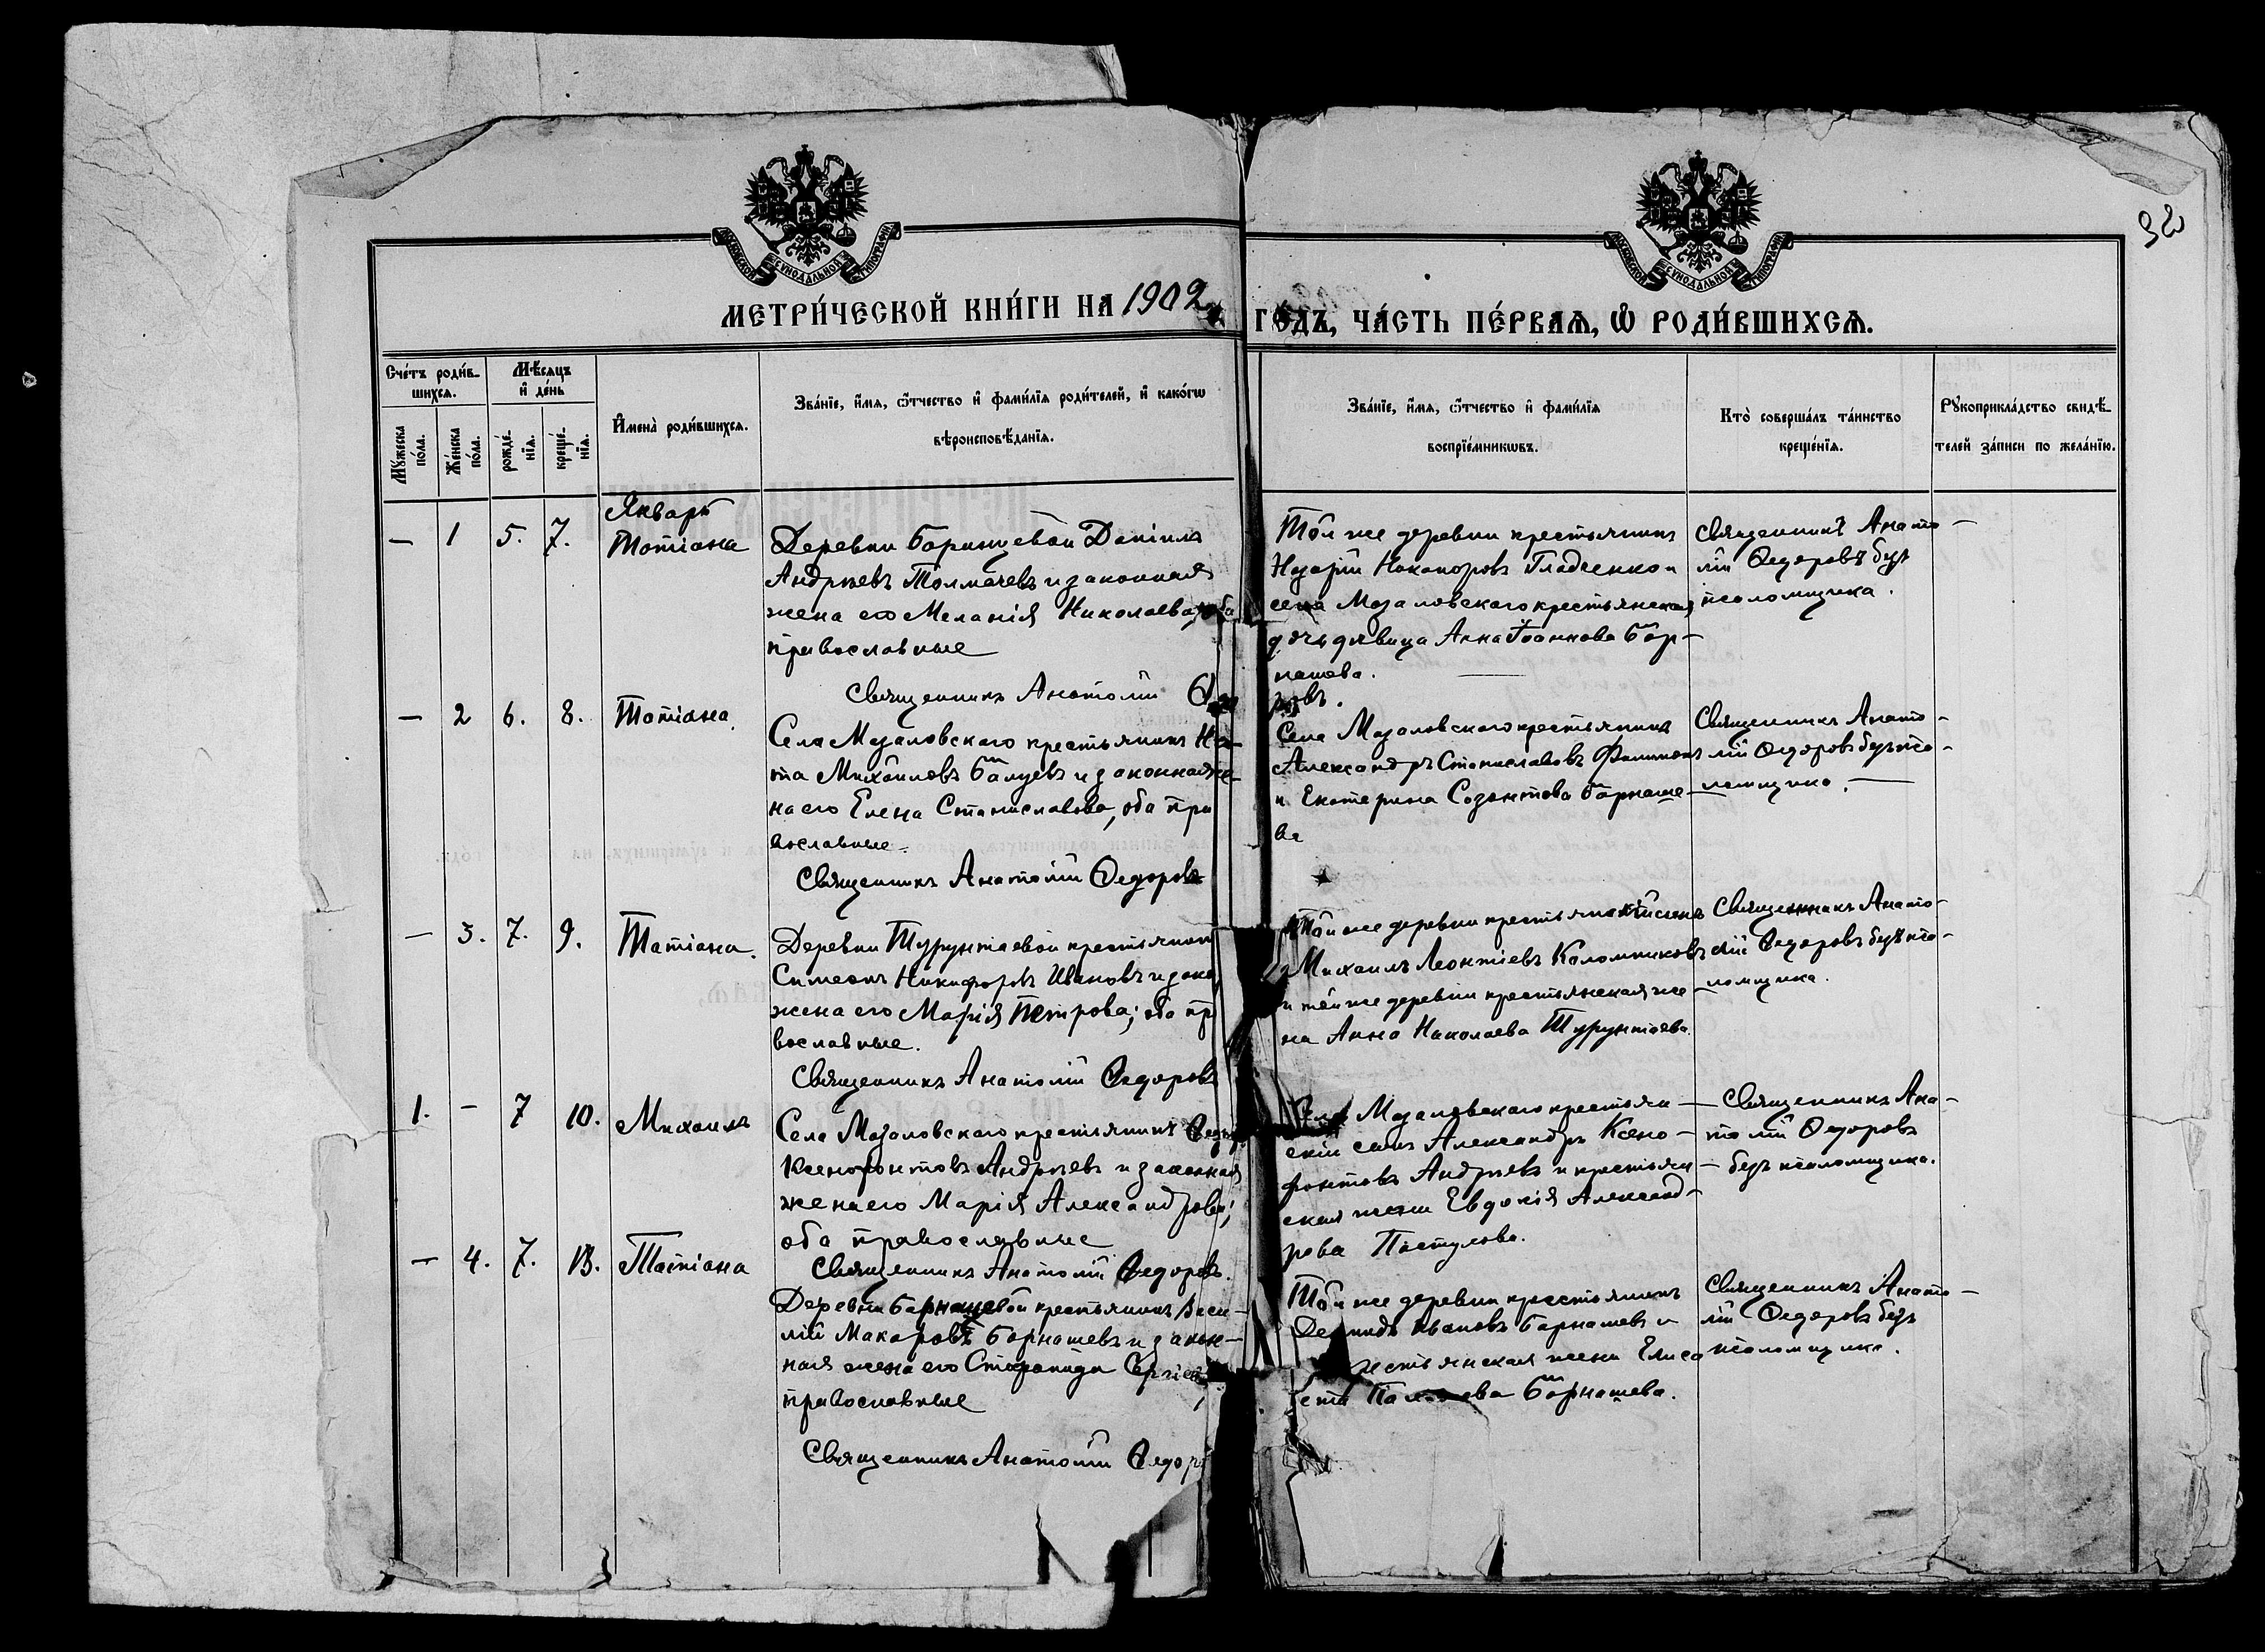 МОСКОВСКОЙ СУНОДАЛЬНОЙ ТИПОГРАФІИ
МОСКОВСКОЙ СУНОДАЛЬНОЙ ТИПОГРАФІИ
МЕТРИ́ЧЕСКОЙ КНИ́ГИ НА 1902
ГО́ДЪ, ЧА́СТЬ ПЕ́РВАѦ, Ѡ҆ РОДИ́ВШИХСѦ.
Сче́тъ роди́в-
шихсѧ.
Мѣ́сѧцъ
и҆ де́нь
Мꙋ́жеска
по́ла.
Же́нска
по́ла.
рожде́-
нїѧ.
креще́-
нїѧ.
И҆мена̀ роди́вшихсѧ.
Зва́нїе, и҆́мѧ, ѻ҆́тчество и҆ фами́лїѧ роди́телей, и҆ како́гѡ
вѣроисповѣ́данїѧ.
Зва́нїе, и҆́мѧ, ѻ҆́тчество и҆ фами́лїѧ
воспрїе́мникѡвъ.
Кто̀ соверша́лъ та́инство
креще́нїѧ.
Рꙋкоприкла́дство свидѣ́-
телей за́писи по жела́нїю.
Январь
— 1 5. 7. Татіана
Деревни Даніилъ
Андреевъ Толмачевъ и законная
жена его Меланія Николаева, оба
православные
Священникъ Анатолій Ѳедо
ровъ.
Той же деревни крестьянинъ
Назарій Никаноровъ Гладченко и
села Мазаловскаго крестьянская
дочь дѣвица Анна Іоаннова Бар-
нашова.
Священникъ Анато-
лій Ѳедоровъ безъ
псаломщика.
— 2 6. 8. Татіана
Села Мазаловскаго крестьянинъ
Михайловъ и законная же-
на его Елена Станиславова, оба пра
вославные.
Священникъ Анатолій Ѳедоровъ
Села Мазаловскаго крестьянинъ
Александръ Станиславовъ
и Екатерина Созонтова Барнаше-
ва
Священникъ Анато-
лій Ѳедоровъ безъ пса-
ломщика.
— 3. 7. 9. Татіана.
Деревни Турунтаевой крестьянинъ
Симеонъ Никифоровъ Ивановъ и закон
жена его Марія Петрова; оба пр
вославные.
Священникъ Анатолій Ѳедоровъ
Той же деревни
Михаилъ Леонтіевъ Коломниковъ
и той же деревни крестьянская же-
на Анна Николаева Турунтаева.
Священникъ Анато-
лій Ѳедоровъ безъ пса-
ломщика.
1. — 7 10. Михаилъ
Села Мазаловскаго крестьянинъ
Ксенофонтовъ Андреевъ и законная
жена его Марія Александрова;
оба православные
Священникъ Анатолій Ѳедоровъ.
Села Мазаловскаго крестьян-
скій сынъ Александръ Ксено-
фонтовъ Андреевъ и крестьян-
ская жена Евдокія Александ-
рова Пастухова.
Священникъ Ана-
толій Ѳедоровъ
безъ псаломщика.
— 4. 7. 13. Татіана
Деревни Барнашевой крестьянинъ Васи-
лій Макаровъ Барнашевъ и закон-
ная жена его Стефанида Сергіев
православные
Священникъ Анатолій Ѳедор
Той же деревни крестьянинъ
Ивановъ Барнашевъ и
крестьянская жена Елиса
бета Барнашева.
Священникъ Анато-
лій Ѳедоровъ безъ
псаломщика.